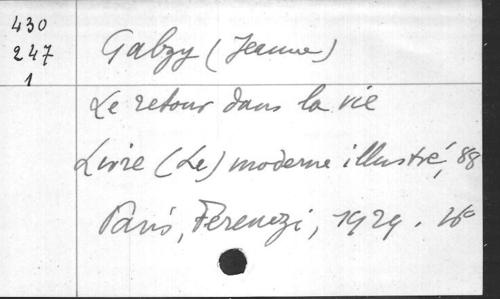 430
247
1
Galzy (Jeanne)
Le retour dans la vie
Livre (Le) moderne illustré, 88
Paris, Ferenczi, 1929. 16°